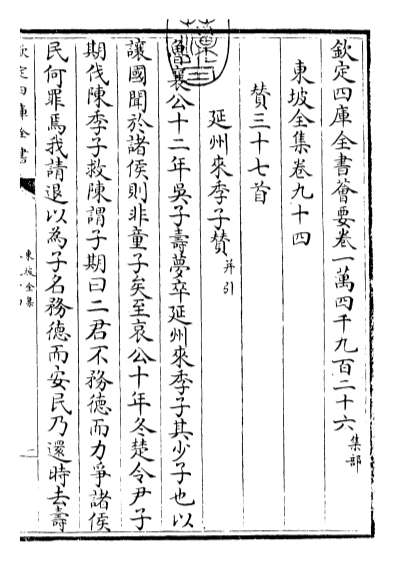 欽定四庫全書薈要卷一萬四千九百二十六 集部
東坡全集卷九十四
贊三十七首
延州來季子贊 并引
魯襄公十二年吳子壽夢卒延州來季子其少子也以
讓國聞於諸侯則非童子矣至哀公十年冬楚令尹子
期伐陳季子救陳謂子期曰二君不務德而力爭諸侯
民何罪焉我請退以為子名務德而安民乃還時去壽
欽定四庫全書
東坡全集